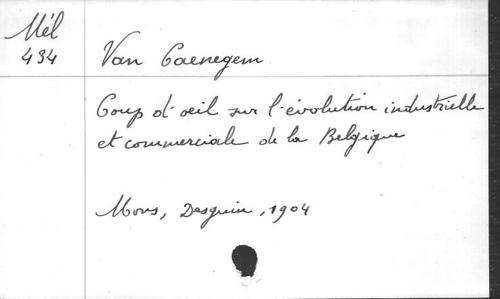 Mél
434
Van Caenegem
Coup d'oeil sur l'évolution industrielle
et commerciale de la Belgique
Mons, Desguin, 1904